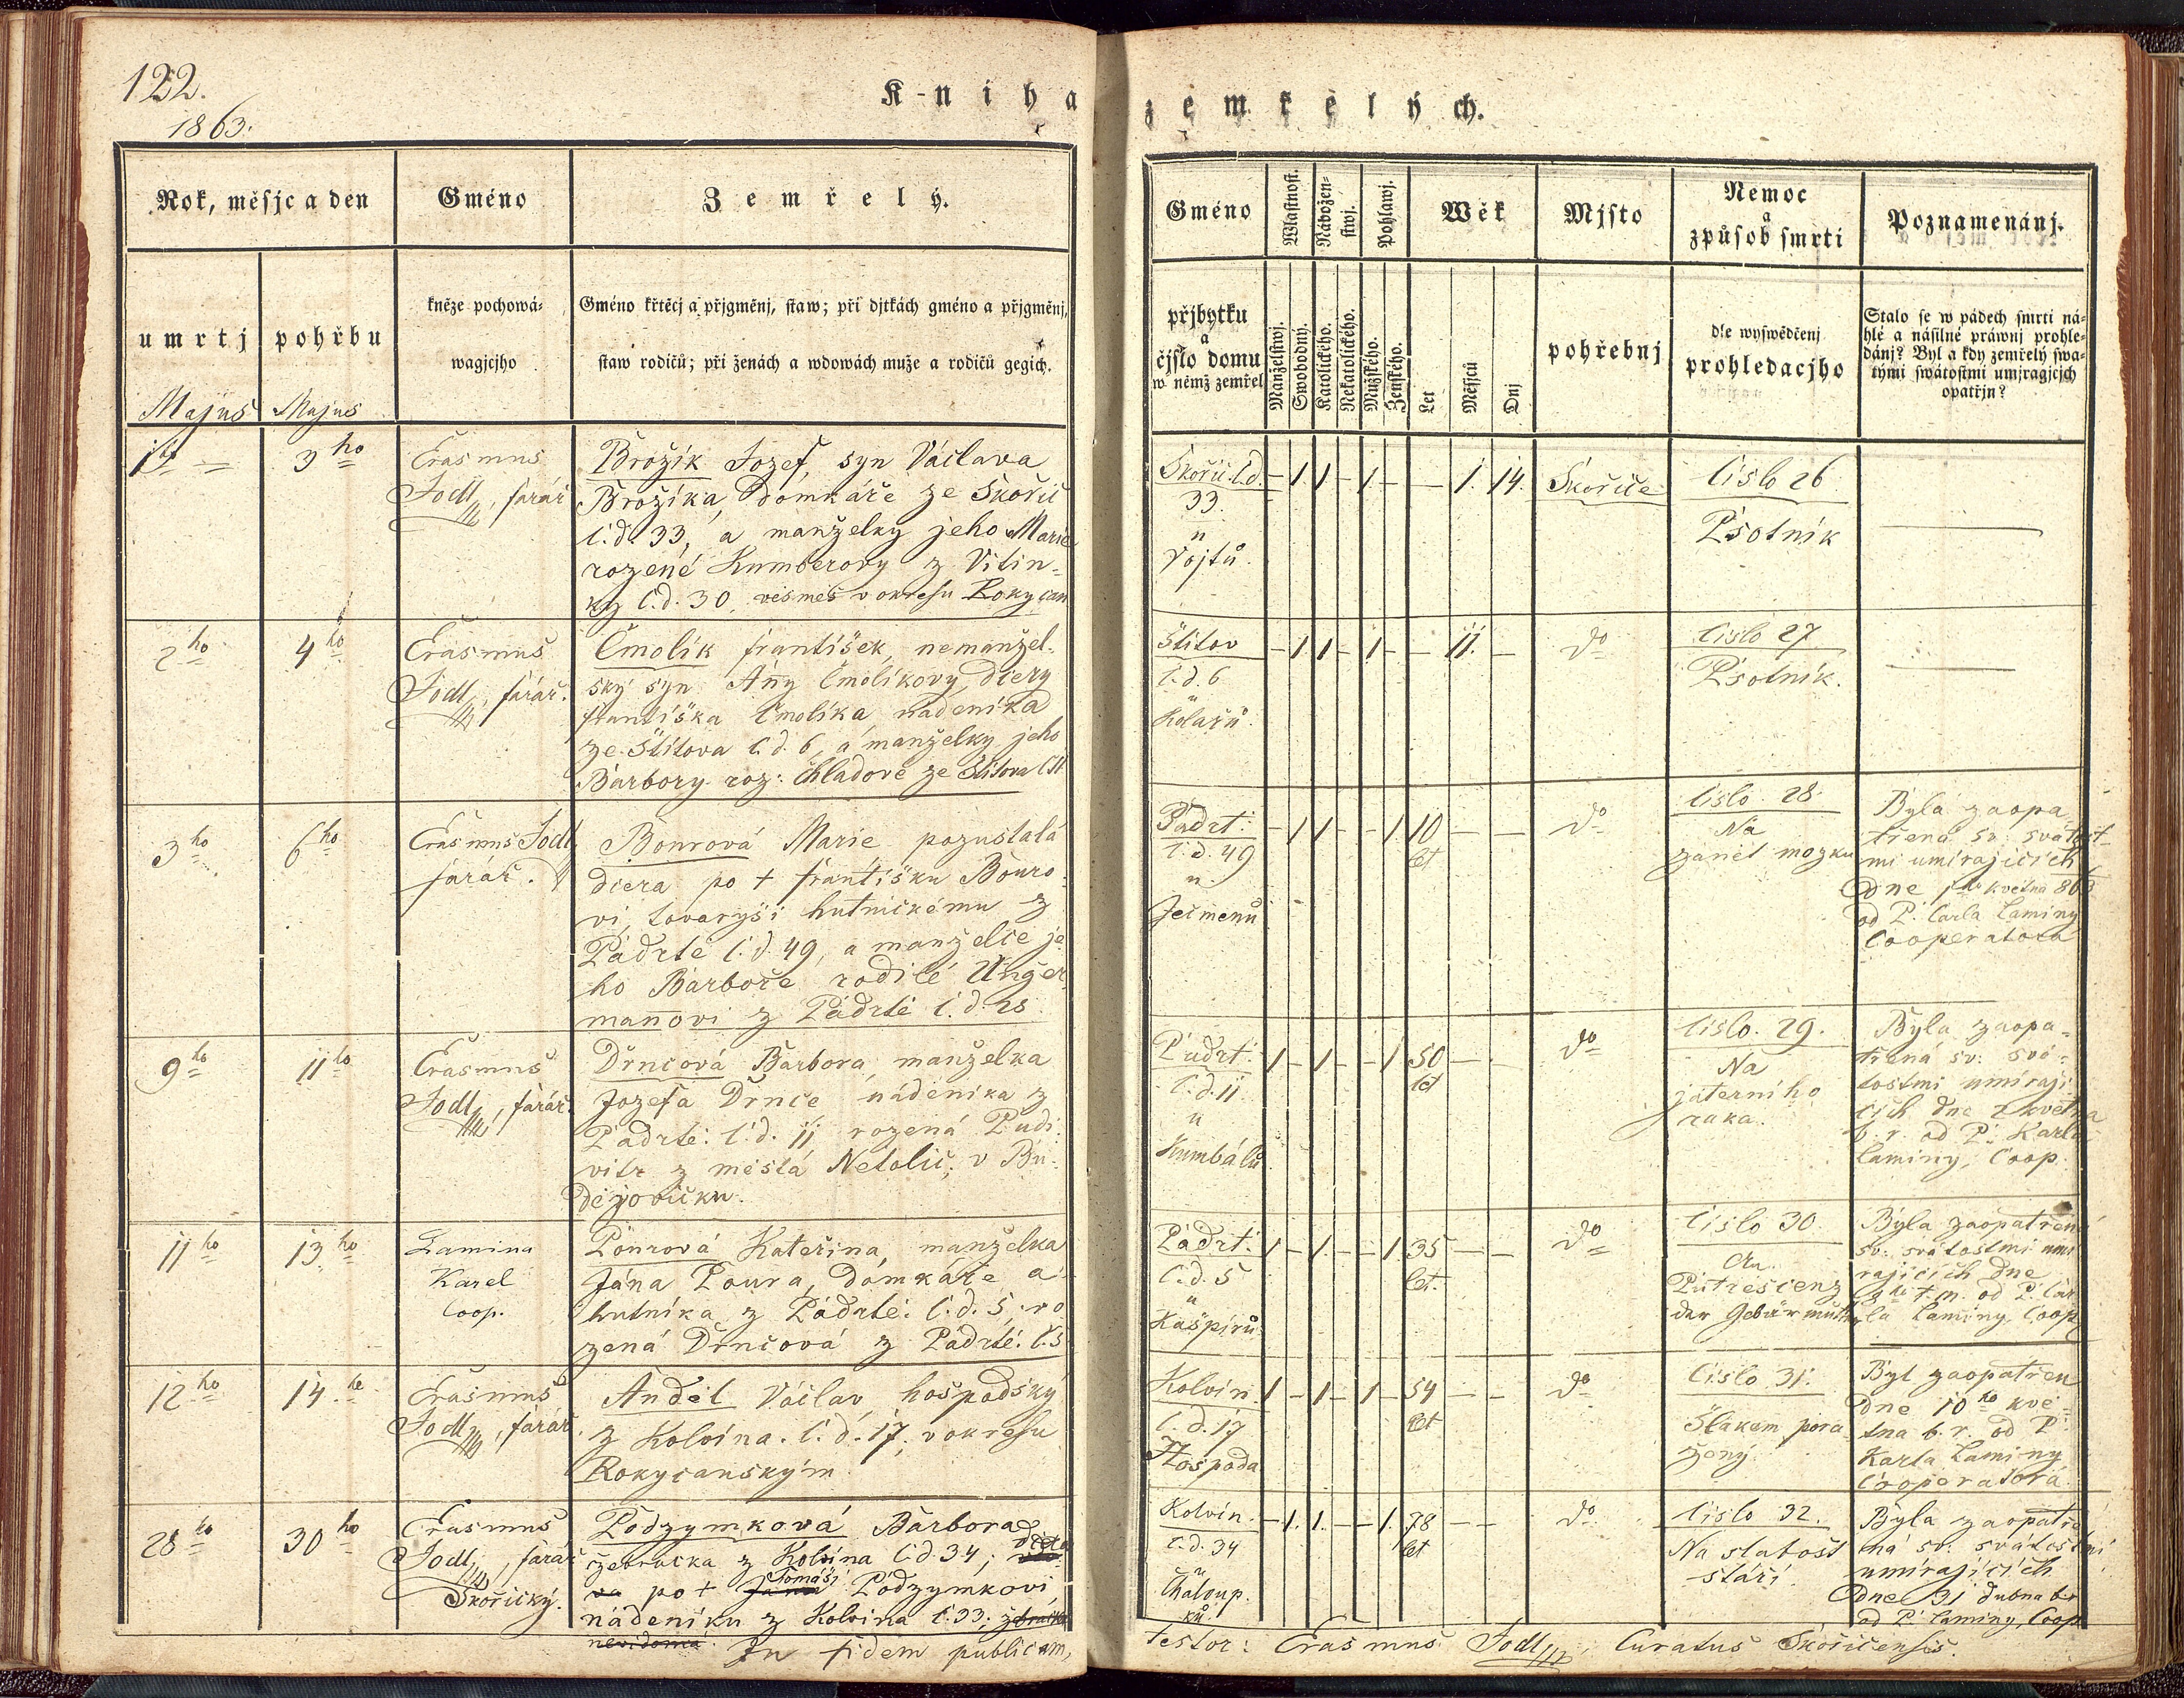 122.
1863.
Kniha zemřelých.
Rok, měsjc a den
Gméno
Zemřelý.
Gméno
Wlastnost.
Náboženstwj.
Pohlawj.
Wěk
Mjsto
Nemoc
a
způsob smrti
Poznamenánj.
umrtj
pohřbu
kněze pochowá-
wagjcjho
Gméno křtěcj a přjgměnj, staw; při djtkách gméno a přjgměnj,
staw rodičů; při ženách a wdowách muže a rodičů gegich.
přjbytku
a
čjslo domu
w němž zemřel
Manželstwj.
Swobodný.
Katolického.
Nekatolického.
Mužského.
Ženského.
Let
Měsjců
Dnj
pohřebnj
dle wyswědčenj
prohledacjho
Stalo se w pádech smrti ná-
hlé a násilné práwnj prohle-
dánj? Byl a kdy zemřelý swa-
tými swátostmi umjragjcjch
opatřjn?
Majus
Majus
3 ho
Erasmus
Jodl, farář
Brožik Jozef, syn Václava
Brožíka, domkáře ze Skořic
č. d. 33, a manželky jeho Marie
rozené Kumberovy z Vitin-
ky č. d. 30, vesměs v okresu Rokycan
Skořic č. d.
33.
u
Vojtů.
- 1 1 - 1 - - 1. 14.
Skořice
číslo 26
Psotník
2 ho
4 ho
Erasmus
Jodl, farář.
Čmolík František, nemanžel-
ský syn Anny Čmolíkovy, dcery
Františka Čmolíka nádeníka
ze Štítova č. d. 6, a manželky jeho
Barbory roz: Chladové ze Štítova
Štitov
č. d. 6
u
Kolářů.
- 1 1 - 1 - - 11. -
do
číslo 27
Psotník.
3 ho
6 ho
Erasmus Jodl
farář.
Bourová Marie pozustalá
dcera po + Františku Bouro-
vi, tovaryši hutnickému z
Padrtě č. d. 49, a manželce je-
ho Barboře rodilé Unger-
manovi z Padrtě č. d. 25
Padrť:
č. d. 49
u
Ječmenů
- 1 1 - - 1 10 - -
let
do
číslo 28.
Na
zánět mozku
Byla zaopa-
třena sv. svátost-
mi umírajících
dne květná 863
od P. Carla Laminy
Cooperatora
9 ho
11 ho
Erasmus
Jodl, farář.
Drncová Barbora, manželka
Jozefa Drnce nádeníka z
Padrtě: č. d. 11 rozená Pudi-
vitr z města Netolic, v Bu-
dějovicku.
Padrť:
č. d. 11
u
Kumbálů
1 - 1 - - 1 50 -
let
do
číslo. 29.
Na
jaterního
raka.
Byla zaopa-
třená sv: svá-
tostmi umíraji-
cích dne 2 května
b. r. od P. Karla
Laminy, Coop.
11 ho
13 ho
Lamina
Karel
Coop.
Pourová Kateřina, manželka
Jána Poura, domkáře a
hutníka z Padrtě: č. d. 5, ro-
zená Drncová z Padrtě: č. 5
Padrť:
č. d. 5
u
Kašpírů
1 - 1 - - 1 35 - -
let.
do
číslo 30.
An
Putrescenz
der Gebärmutter
Byla zaopatřená
sv: svátostmi umi-
rajících dne
9 ho t. m. od P. Car-
la Laminy Coop
12 ho
14 ho
Erasmus
Jodl, farář.
Anděl Václav, hospodský
z Kolvína. č. d. 17, v okresu
Rokycanským
Kolvín.
č. d. 17
Hospoda
1 - 1 - 1 - 54 - -
let
do
číslo 31.
Šlakem pora-
žený.
Byl zaopatřen
dne 10 ho kvě-
tna b. r. od P.
Karla Laminy
Cooperatora
28 ho
30 ho
Erasmus
Jodl, farář
Skořický.
Podzymková Barbora
žebračka z Kolvína č. d 34; dcera
po + Tomáši Podzymkovi,
nádeníku z Kolvína č. 33; žebračka
nevidomá.
Kolvín.
č. d. 34
u
Chaloup-
ků.
- 1. 1. - - 1. 78 - -
let
do
číslo 32.
Na slabost
stáří
Byla zaopatře-
ná sv: svátostmi
umírajících
dne dubna b. r.
od P. Laminy, Coop
In fidem publicam,
testor: Erasmus Jodl, Curatus Skořicensis.